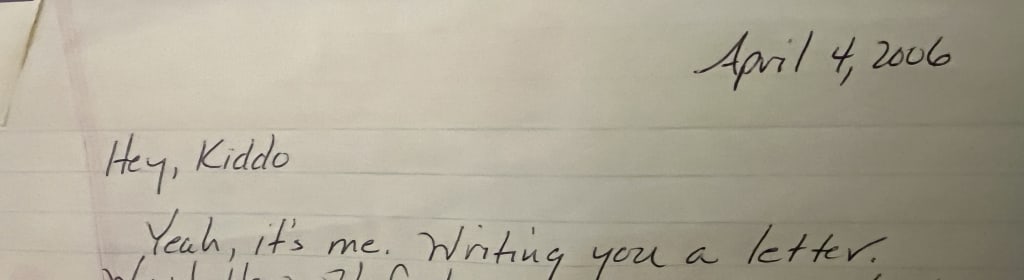 April 4, 2006
Hey, Kiddo
Yeah, it's me. Writing you a letter.